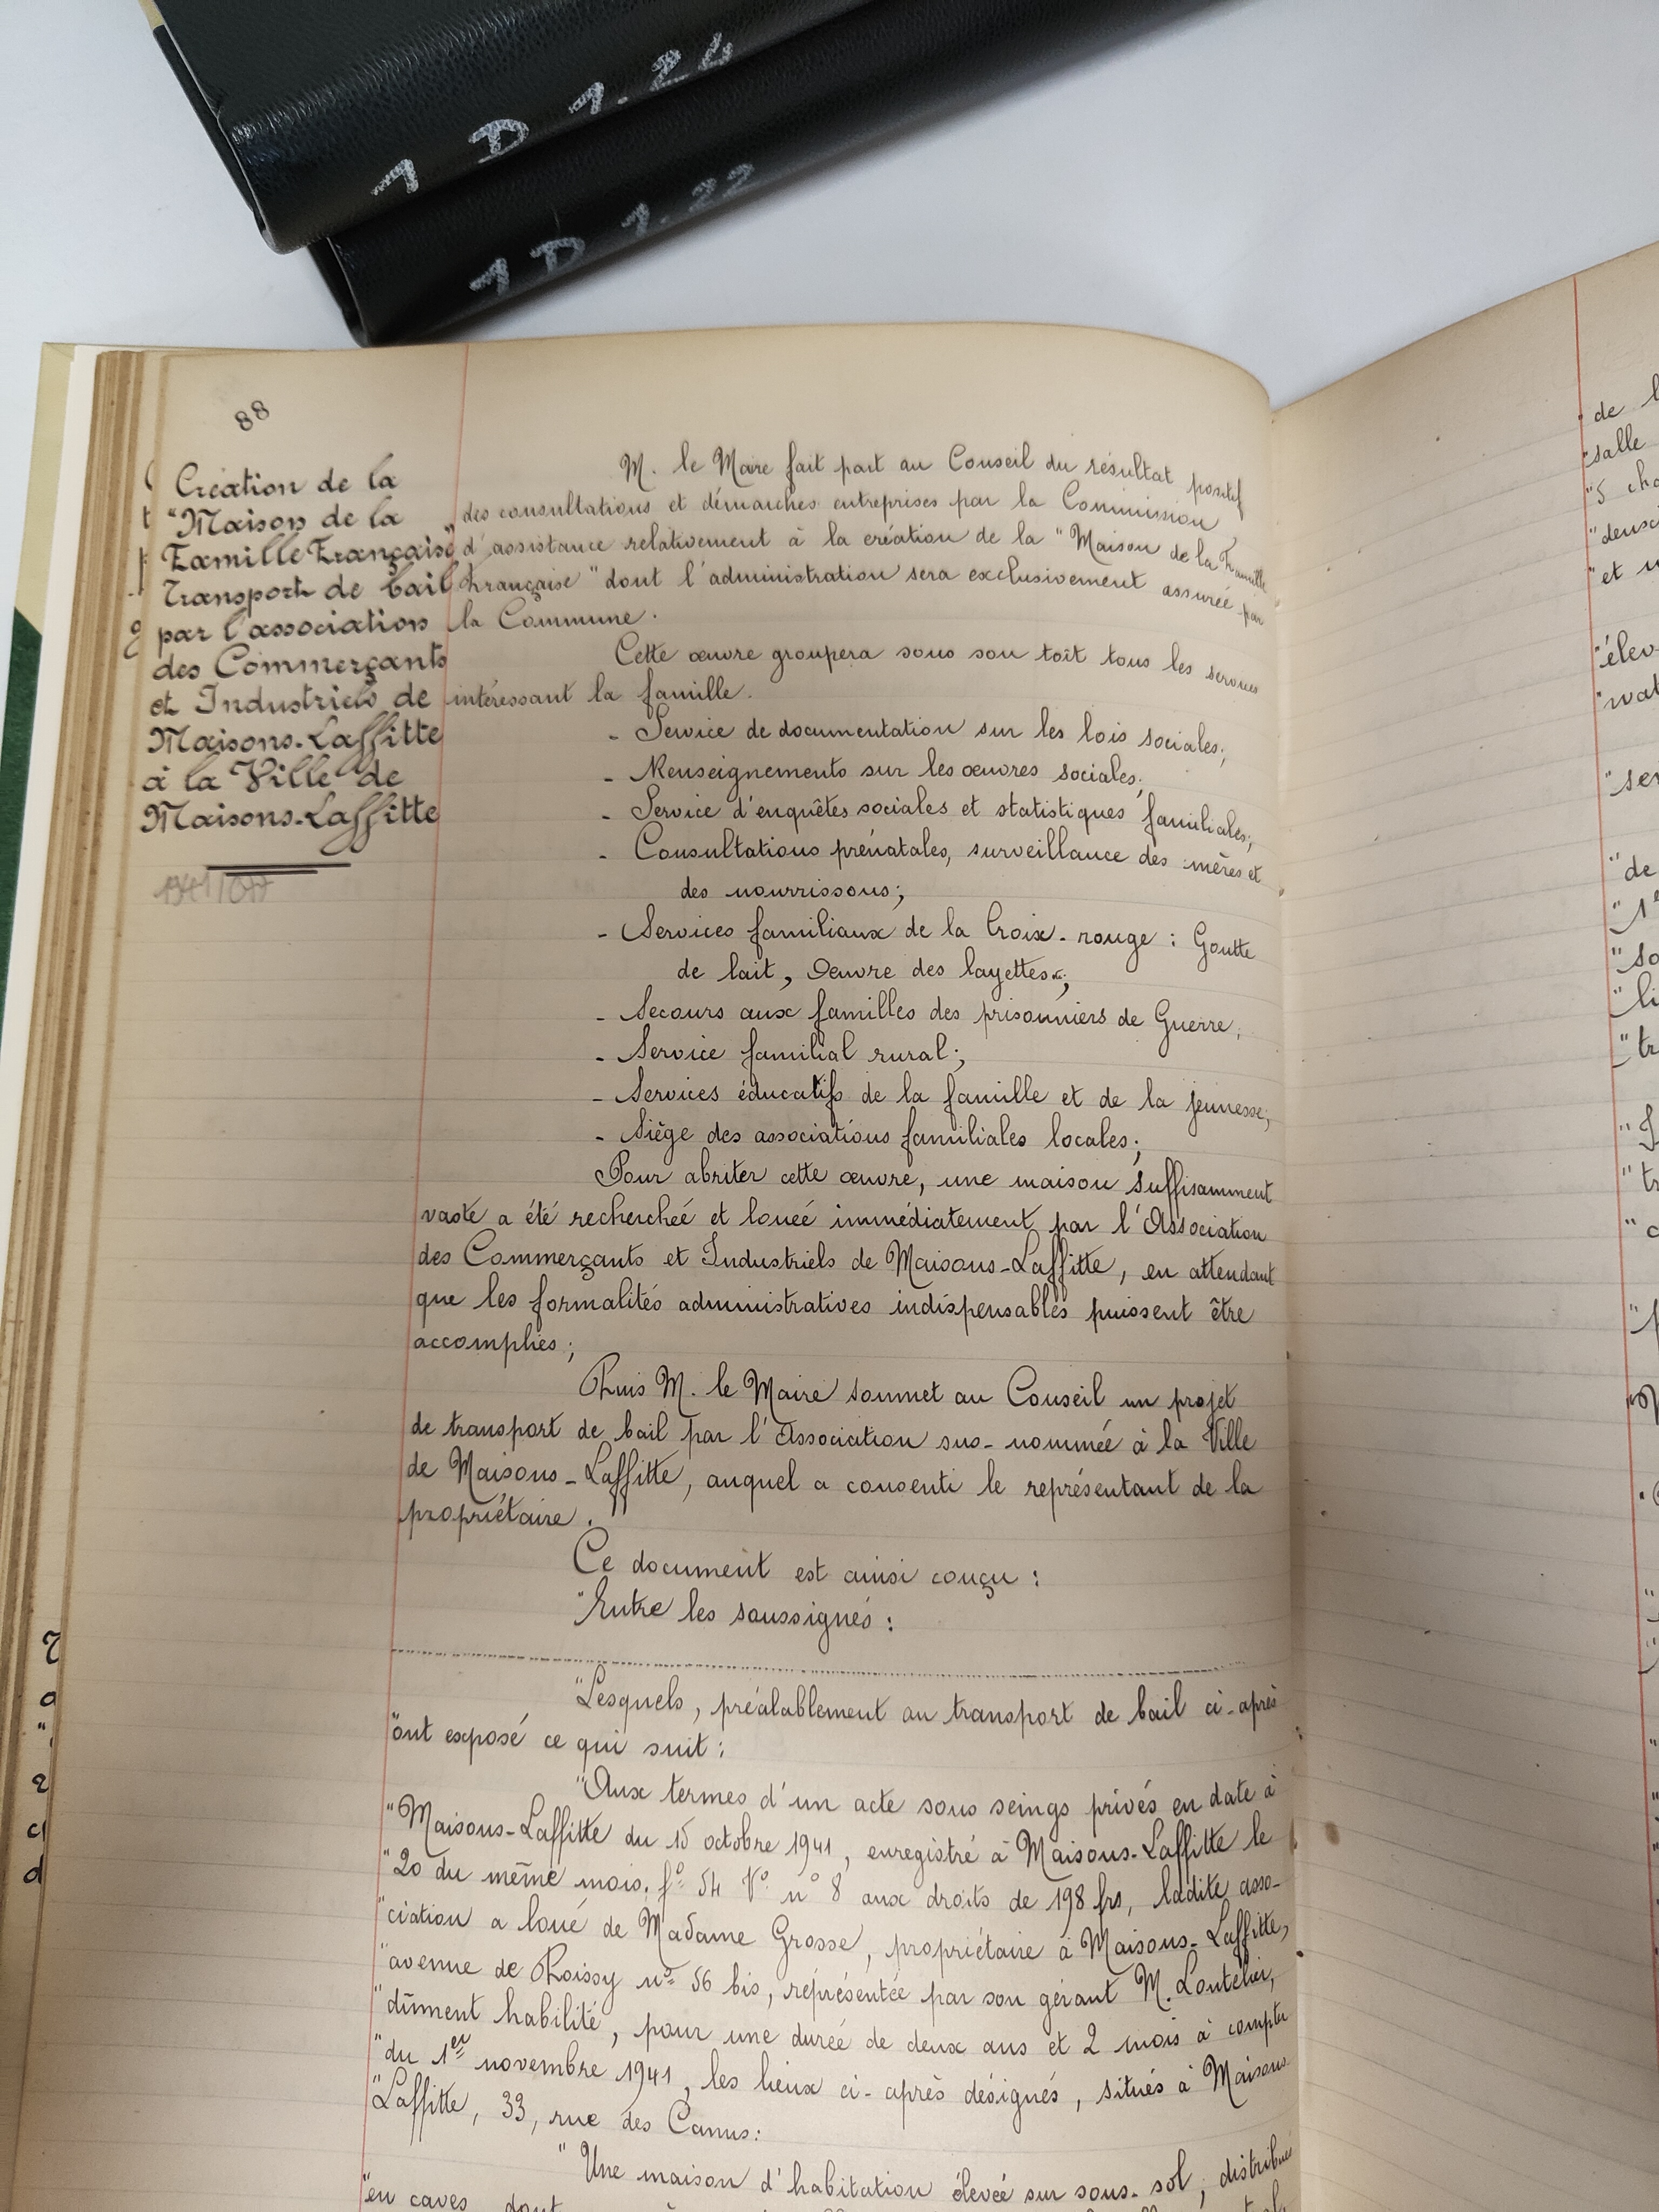 1 D 1.24
1 D 1.22
88
Création de la
"Maison de la
Famille Française"
Transport de bail
par l'association
des Commerçants
et Industriels de
Maisons-Laffitte
à la Ville de
Maisons-Laffitte
M. le Maire fait part au Conseil du résultat positif
des consultations et démarches entreprises par la Commission
d'assistance relativement à la création de la "Maison de la Famille
Française" dont l'administration sera exclusivement assurée par
la Commune.
Cette œuvre groupera sous son toît tous les services
intéressant la famille.
- Service de documentation sur les lois sociales;
- Renseignements sur les œuvres sociales;
- Service d'enquêtes sociales et statistiques familiales;
- Consultations prénatales, surveillance des mères et
des nourrissons;
- Services familiaux de la Croix-rouge : Goutte
de lait, Oeuvre des layettes;
- Secours aux familles des prisonniers de Guerre;
- Service familial rural;
- Services éducatifs de la famille et de la jeunesse;
- Siège des associations familiales locales;
Pour abriter cette œuvre, une maison suffisamment
vaste a été recherchée et louée immédiatement par l'Association
des Commerçants et Industriels de Maisons-Laffitte, en attendant
que les formalités administratives indispensables puissent être
accomplies;
Puis M. le Maire soumet au Conseil un projet
de transport de bail par l'Association sus-nommée à la Ville
de Maisons-Laffitte, auquel a consenti le représentant de la
propriétaire.
Ce document est ainsi conçu :
"Entre les soussignés :
"Lesquels, préalablement au transport de bail ci-après
"ont exposé ce qui suit :
"Aux termes d'un acte sous seings privés en date à
"Maisons-Laffitte du 15 octobre 1941, enregistré à Maisons-Laffitte le
"20 du même mois, f° 54 V° n° 8 aux droits de 198 frs, ladite asso-
"ciation a loué de Madame Grosse, propriétaire à Maisons-Laffitte,
"avenue de Poissy n° 56 bis, représentée par son gérant M.
"dûment habilité, pour une durée de deux ans et 2 mois à compter
"du 1er novembre 1941, les lieux ci-après désignés, situés à Maisons
"Laffitte, 33, rue des Canus :
"Une maison d'habitation élevée sur sous-sol, distribué
"en caves dont
"de
"salle
"et
"de